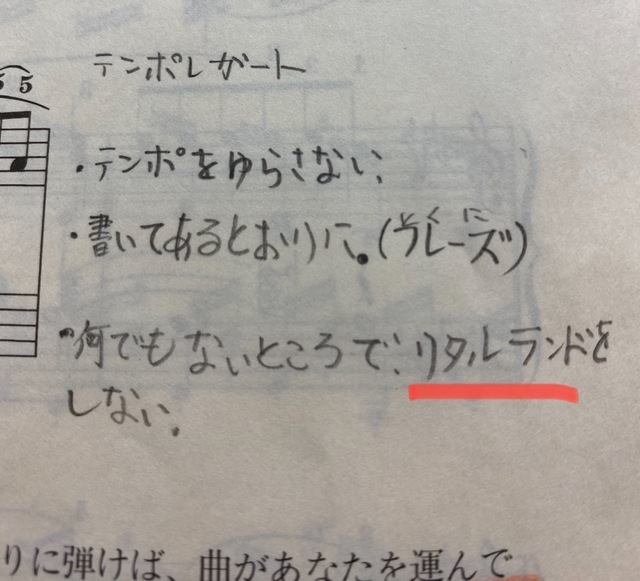 5 5
テンポレガート
・テンポをゆらさない
・書いてあるとおりに。(フレーズ)
とくに
・何でもないところで、リタルランドを
しない。
りに弾けば、曲があなたを運んで